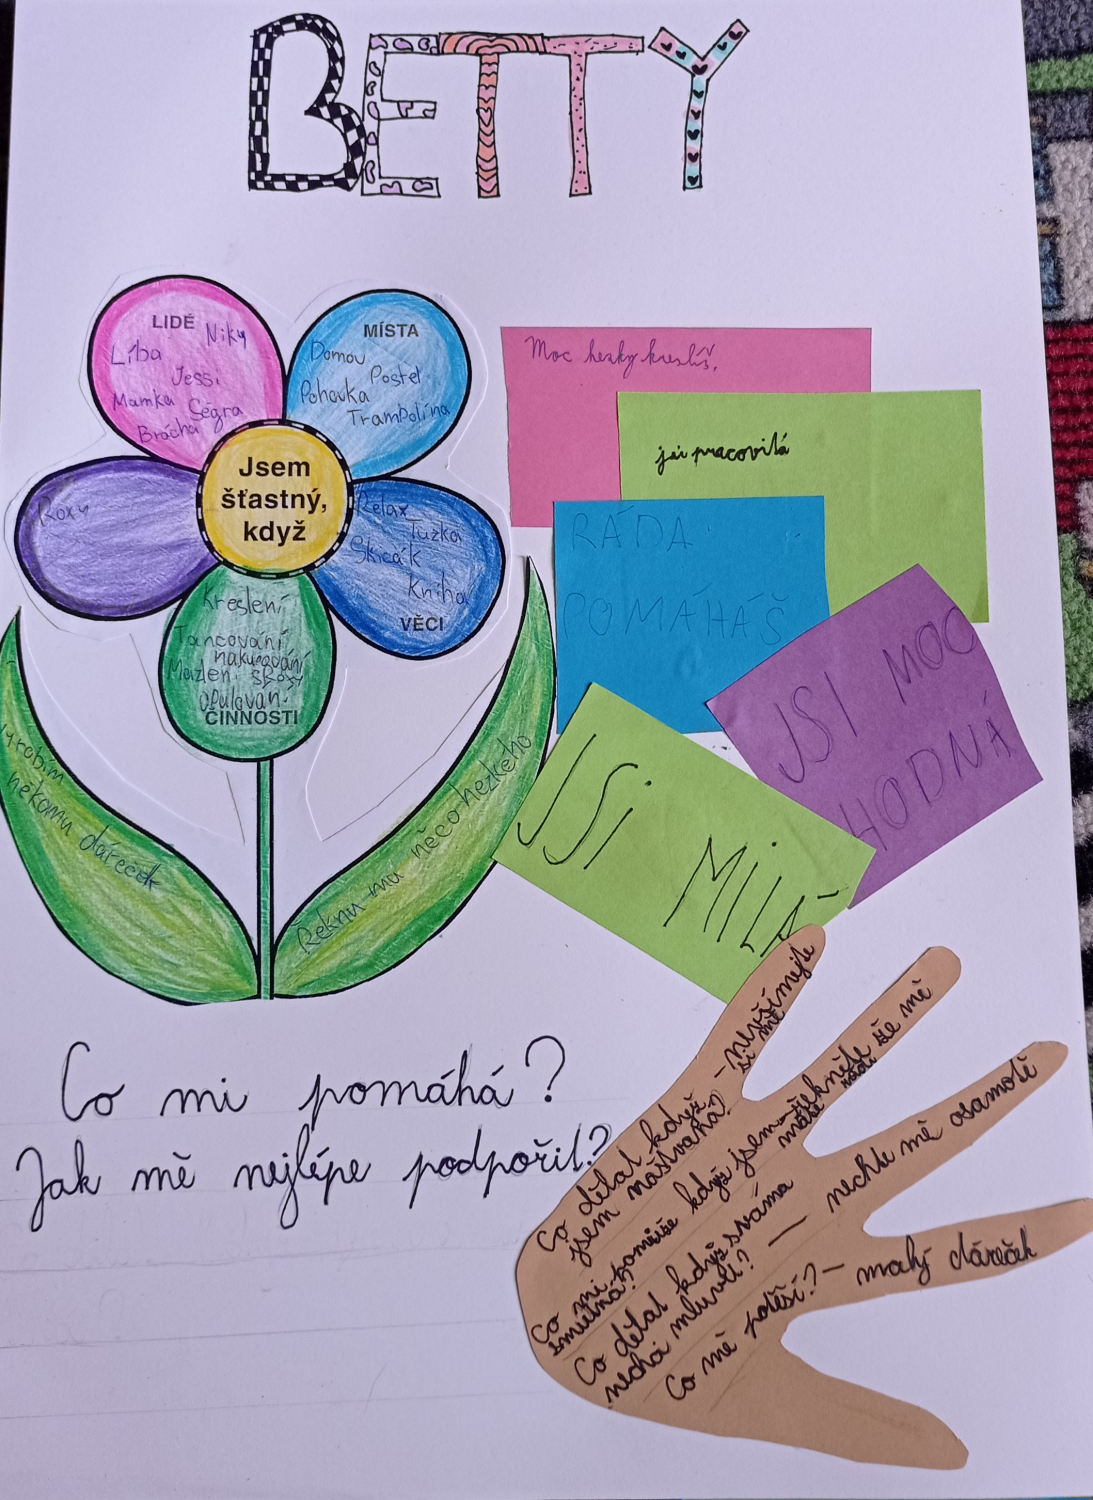 BETTY
LIDÉ
Niky
Líba
Jessi
Mamka Ségra
Brácha
MÍSTA
Domov
Postel
Pohovka
Trampolína
Roxy
Jsem
šťastný,
když
Relax
Tužka
Skicák
Kniha
VĚCI
Kreslení
Tancování
nakupování
Mazlení s Roxy
ČINNOSTI
Vyrobím
někomu dáreček
Řeknu mu něco hezkého
Moc hezky kreslíš.
jsi pracovitá
RÁDA
POMÁHÁŠ
JSI MOC
HODNÁ
JSi MiLÁ
Co mi pomáhá?
Jak mě nejlépe podpořit?
Co dělat když - nevšímejte
jsem naštvaná? si mě
Co mi pomůže když jsem - řekněte že mě
smutná? máte rádi
Co dělat když s váma — nechte mě osamotě
nechci mluvit?
Co mě potěší? — malý dáreček